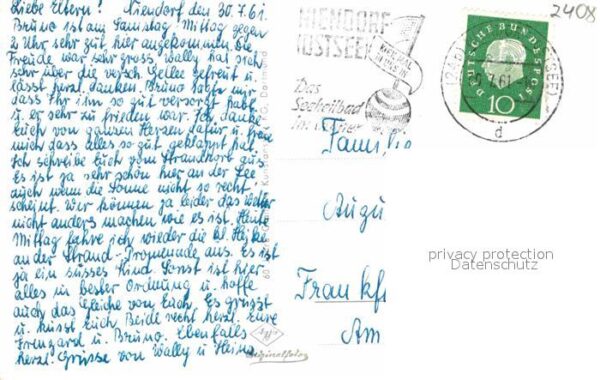 Liebe Eltern! Niendorf den 30.7.61.
Bruno ist am Samstag Mittag gegen
2 Uhr sehr gut hier angekommen. Die
Freude war sehr gross. Wally hat sich
sehr über die versch. Gelee gefreut u.
lässt herzl. danken. Bruno sagte mir
dass Ihr ihn so gut versorgt habt
u. er sehr zu frieden war. Ich danke
Euch von ganzen Herzen dafür u. freue
mich dass alles so gut geklappt hat.
Ich schreibe Euch vom Strandkorb aus.
Es ist ja sehr schön hier an der See
auch wenn die Sonne nicht so recht
scheint. Wir können ja leider das Wetter
nicht anders machen wie es ist. Heute
Mittag fahre ich wieder die kl. Heike
an der Strand-Promenade aus. Es ist
ja ein süsses Kind. Sonst ist hier
alles in bester Ordnung u. hoffe
auch das Gleiche von Euch. Es grüsst
u. küsst Euch Beide recht herzl. Eure
Irmgard u. Bruno. Ebenfalls
herzl. Grüsse von Wally u. Heinz
Originalfoto
NIENDORF
(OSTSEE)
Das
Seeheilbad
2408
DEUTSCHE BUNDESPOST
10
7.61
d
Famili
Augu
Frankf
Am
privacy protection
Datenschutz